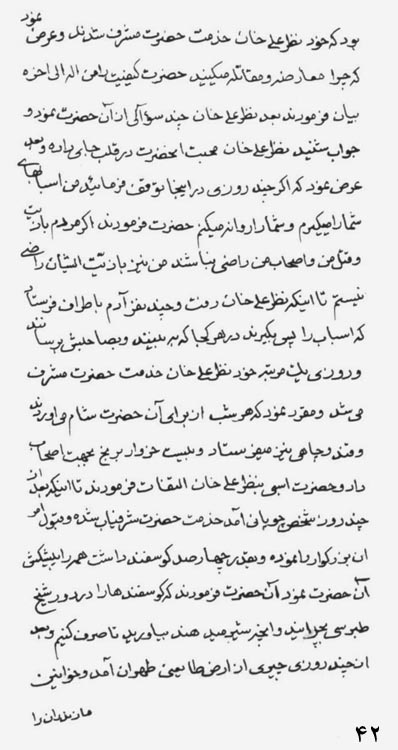 بود که خود نظر علی خان خدمت حضرت مشرف شدند و عرض نمود
که چرا معارضه و مقاتله میکنید حضرت کیفیت را من اله الی اخره
بیان فرمودند بعد نظر علی خان چند سؤالی از آن حضرت نمود و
جواب شنید نظر علی خان محبت انحضرت در قلب جای داده و بعد
عرض نمود که اگر چند روزی در اینجا توقف فرمائید من اسبابهای
شما را میگیرم و شما را روانه میکنم حضرت فرمودند اگر مردم باذیت
و قتل من و اصحاب من راضی بناشند من نیز باذیت الیشان راضی
نیستم تا اینکه نظر علی خان رفت و چند نفر آدم باطراف فرستاد
که اسباب را پس بگیرند در هر کجا که به بینند و بصاحبش برسانند
و روزی یک مرتبه خود نظر علی خان خدمت حضرت مشرف
می شد و مقرر نمود که هر شب از برای آن حضرت شام می اوردند
و قند و چاهی نیز میفرستاد و بیست خروار برنج بجهت اصحاب
داد و حضرت اسبی بنظر علی خان التفات فرمودند تا اینکه بعد از
چند روز شخص چوپان آمد خدمت حضرت شرفیاب شده و قبول امر
ان بزرگوار را نموده و بقدر چهار صد گوسفند داشت همه را پیشکش
آن حضرت نمود آن حضرت فرمودند که گوسفندها را در دور شیخ
طبرسی بچرانید و انچه شیر میدهند بیاورید تا صرف کنیم و بعد
از چند روزی خبری از ارض طا یعنی طهران آمد و خوانین
مازندران را
۴۲